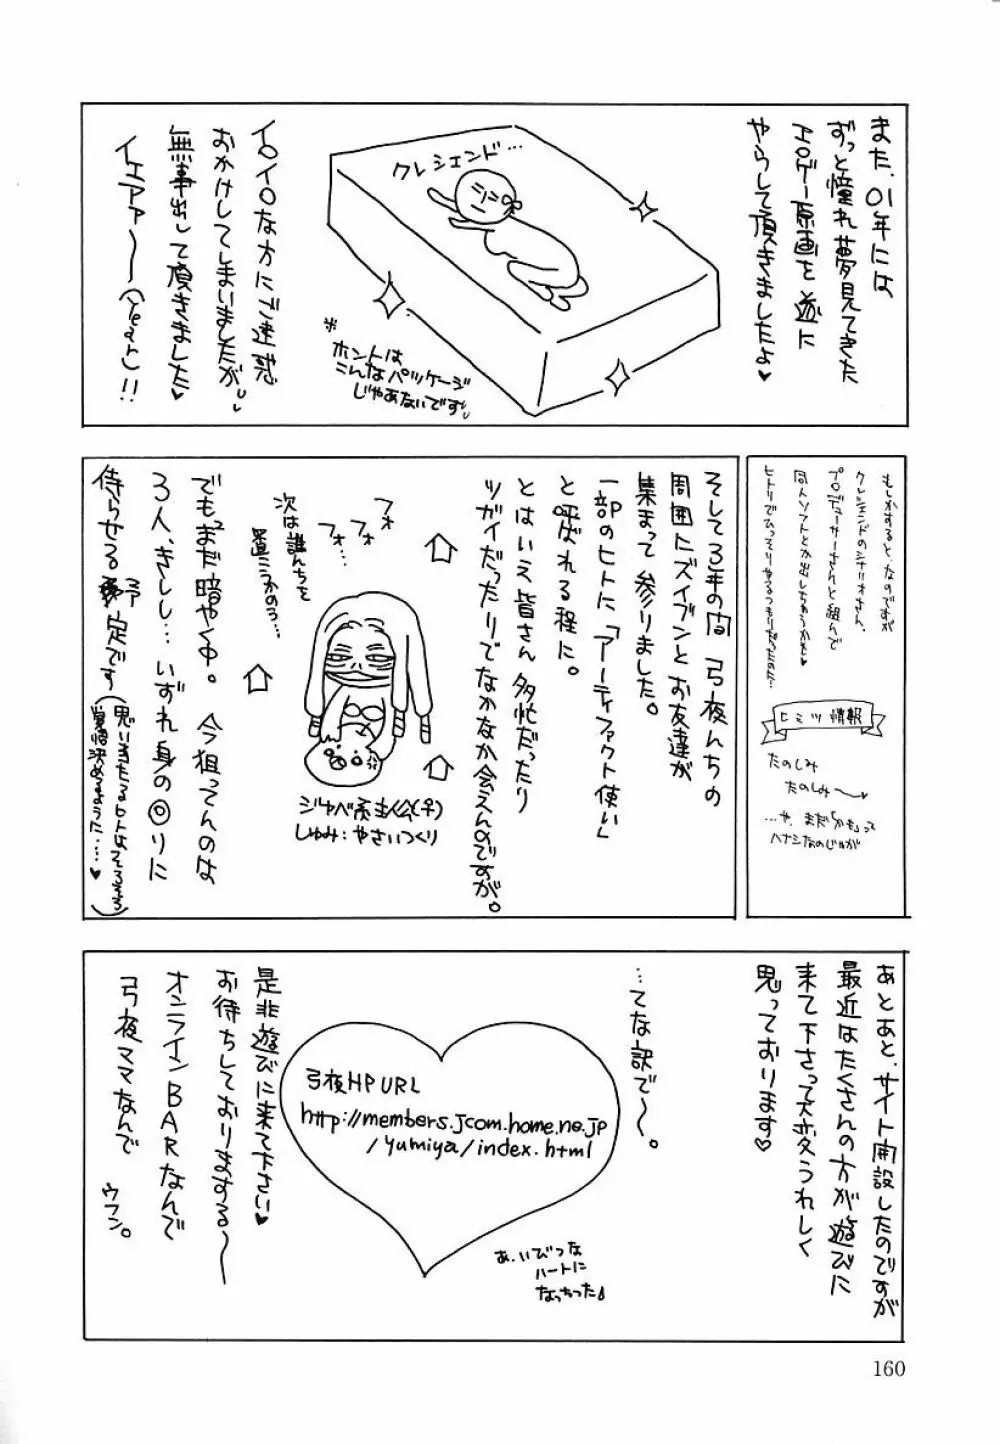 また、01年には
ずっと憧れ夢見てきた
エロゲー原画を遂に
やらして頂きましたよ♥
クレシェンド…
※
ホントは
こんなパッケージ
じゃあないです
イロイロな方にご迷惑
おかけしてしまいましたが、
無事出して頂きました♥
イェアァ〜〜(Yeah)!!
もしかすると、なのですが
クレシェンドのシナリオさん、
プロデューサーさんと組んで
同人ソフトとか出しちゃうかも♥
ヒトリでひっそりやるつもりだったのに…
ヒミツ情報
たのしみ
たのしみ〜♥
…や、まだ「かも」って
ハナシなのじゃが
そして3年の間 弓夜んちの
周囲にズイブンとお友達が
集まって参りました。
一部のヒトに「アーティファクト使い」
と呼ばれる程に。
とはいえ皆さん多忙だったり
ツガイだったりでなかなか会えんのですが。
フォ
フォ
フォ…
次は誰んちを
置こうかのう…
ジャベ系主人公(♀)
しゅみ：やさいつくり
でもまだ暗やく中。 今狙ってんのは
3人、きしし… いずれ身の◎りに
侍らせる予定です
(思い当たるヒトはそろそろ
覚悟決めるように…♥)
あとあと、サイト開設したのですが
最近はたくさんの方が遊びに
来て下さって大変うれしく
思っております♡
…てな訳で〜。
弓夜HP URL
http://members.jcom.home.ne.jp
/yumiya/index.html
あ、いびつな
ハートに
なっちった♪
是非遊びに来て下さい♥
お待ちしておりまする〜
オンラインBARなんで
弓夜ママなんで
ウフン。
160